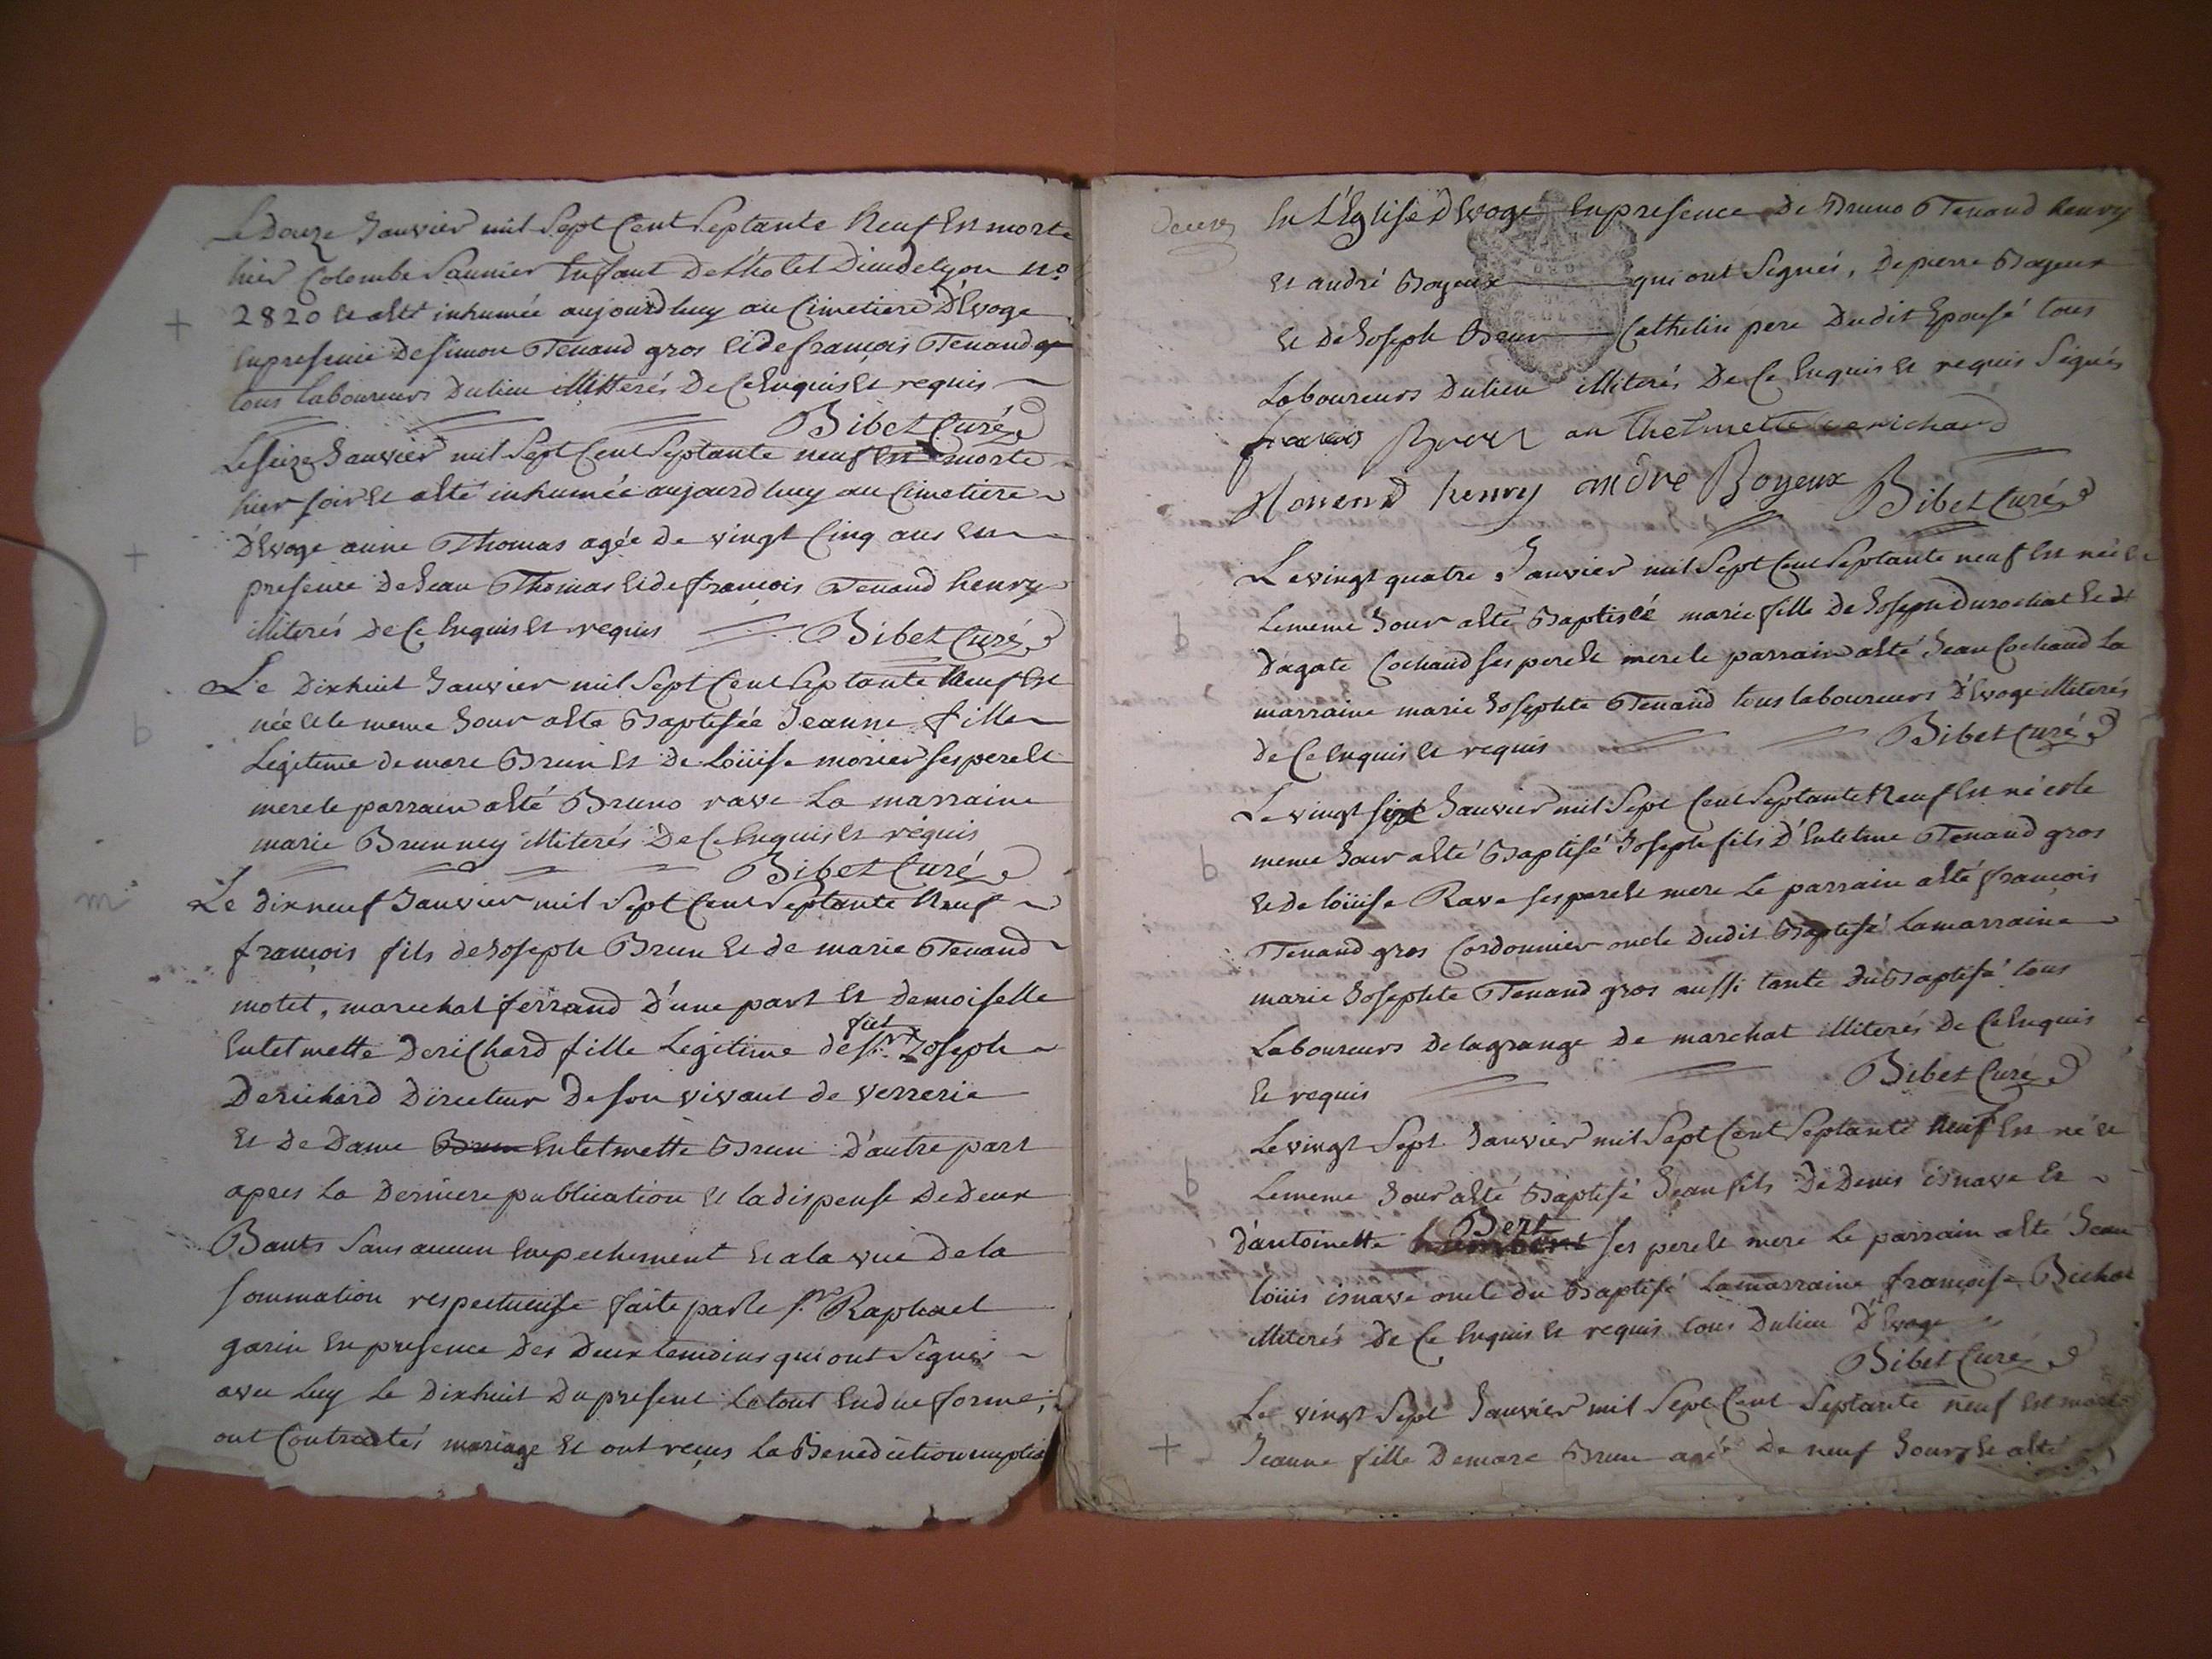 Le Douze Janvier mil Sept Cent Septante Neuf Est morte
hier Colombe Saunier Enfant De l'hotel Dieu de lyon n.o
2820 et a été inhumée aujourdhuy au Cimetiere D'Evoge
En presence De Simon Tenand gros et de françois Tenand
tous laboureurs Du lieu illiterés De Ce Enquis et requis
Bibet Curé
Le Seize Janvier mil Sept Cent Septante neuf Est morte
hier soir et a été inhumée aujourdhuy au Cimetiere
D'Evoge anne Thomas agée De vingt Cinq ans En
presence De Jean Thomas et de françois Tenand henry
illiterés De Ce Enquis et requis Bibet Curé
b
Le Dixhuit Janvier mil Sept Cent Septante Neuf Est
née et le meme Jour a été Baptisée Jeanne fille
Legitime de marc Brun et De Loüise morier ses pere et
mere le parrain a été Bruno rave La marraine
marie Brunney illiterés De Ce Enquis et requis
Bibet Curé
m
Le Dix neuf Janvier mil Sept Cent Septante Neuf
françois fils de Joseph Brun et de marie Tenand
motet, marechal ferrand D'une part et Demoiselle
Entelmette Derichard fille Legitime de feu Sr. Joseph
Derichard Directeur De son vivant de verrerie
et De Dame Brun Entelmette Brun D'autre part
apres La Derniere publication et la dispense De Deux
Bants Sans aucun Empechement et a la vuë De la
Sommation respectueuse faite par le sr. Raphael
garin En presence Des Deux temoins qui ont Signés
avec Luy Le Dixhuit Du present Le tout En due forme;
ont Contractés mariage et ont reçus La Benediction nuptia
En L'Eglise D'Evoge En presence De Bruno Tenand henry
et andré Boyeux qui ont Signés, De pierre Boyeux
et De Joseph Brun Cathelin pere Dudit Epousé tous
Laboureurs Du lieu illiterés De Ce Enquis et requis Signés
francois Brun an thelmette de richard
henry andre Boyeux Bibet Curé
Le vingt quatre Janvier mil Sept Cent Septante neuf Est née et
b
Le meme Jour a été Baptisée marie fille De Joseph Durochat et
D'agate Cochaud ses pere et mere le parrain a été Jean Cochaud La
marraine marie Josephte Tenand tous laboureurs D'Evoge illiterés
de Ce Enquis et requis Bibet Curé
Le vingt Janvier mil Sept Cent Septante Neuf Est né et le
b
meme Jour a été Baptisé Joseph fils D'Entelme Tenand gros
et De loüise Rave ses pere et mere Le parrain a été françois
Tenand gros Cordonnier oncle Dudit Baptisé La marraine
marie Josephte Tenand gros aussi tante Du Baptisé tous
Laboureurs De la grange De marchat illiterés De Ce Enquis
et requis Bibet Curé
Le vingt Sept Janvier mil Sept Cent Septante Neuf Est né et
b
Le meme Jour a été Baptisé Jean fils De Denis isnave et
D'antoinette Bert ses pere et mere Le parrain a été Jean
loüis isnave oncle du Baptisé La marraine françoise Bichat
illiterés De Ce Enquis et requis tous Du lieu D'Evoge
Bibet Curé
Le vingt Sept Janvier mil Sept Cent Septante neuf Est morte
Jeanne fille De marc Brun agée De neuf Jours et a été